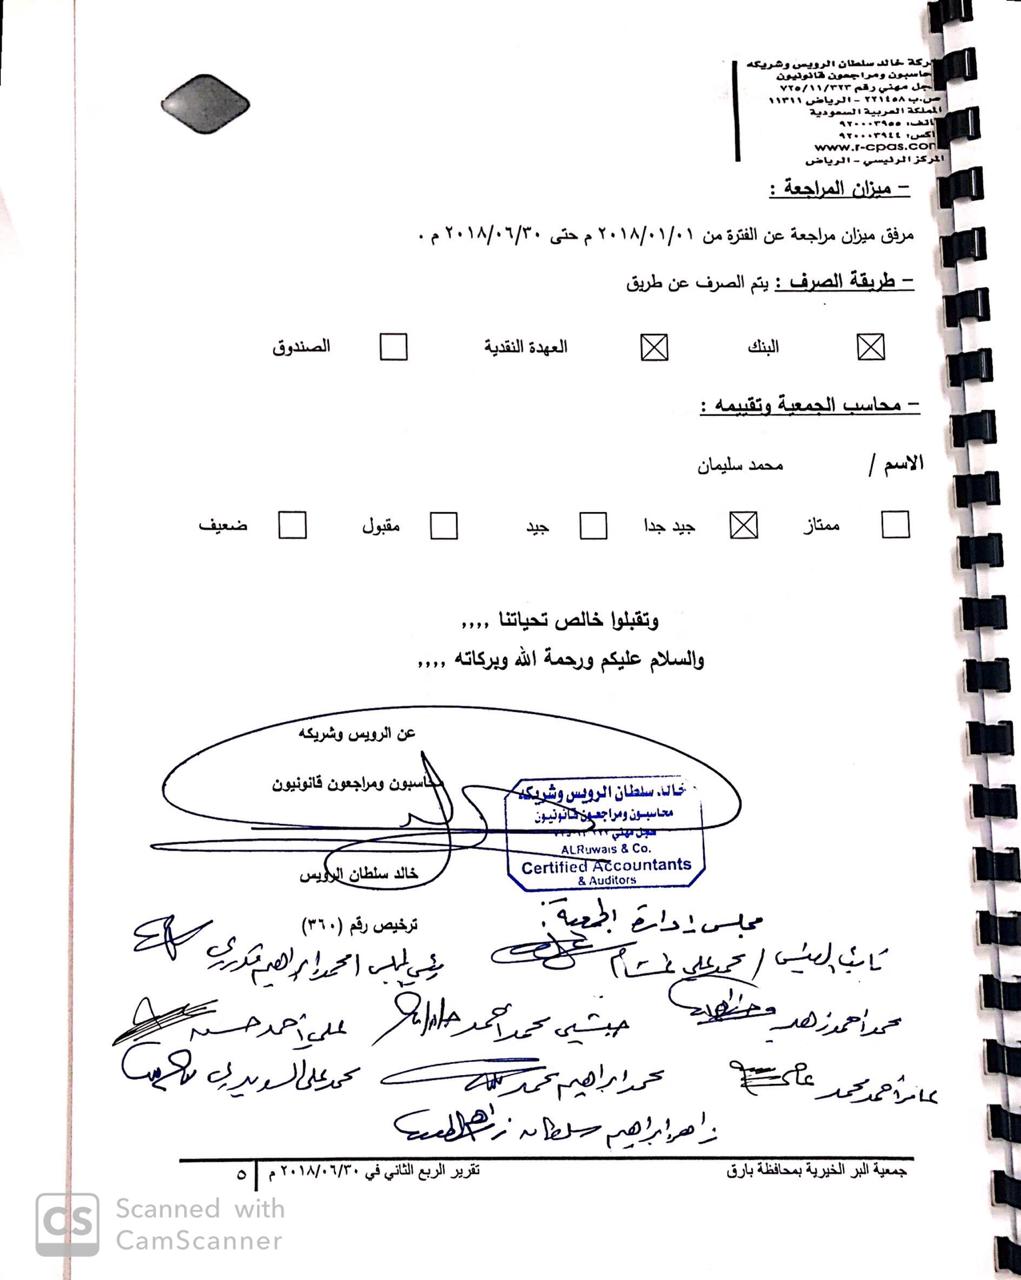 ركة خالد سلطان الرويس وشريكه
حاسبون ومراجعون قانونيون
جل مهني رقم ٧٢٥/١١/٣٢٣
ص.ب ٢٢١٤٥٨ - الرياض ١١٣١١
المملكة العربية السعودية
اتف: ٩٢٠٠٠٣٩٥٥
اكس: ٩٢٠٠٠٣٩٤٤
www.r-cpas.com
المركز الرئيسي - الرياض
- ميزان المراجعة :
مرفق ميزان مراجعة عن الفترة من ٢٠١٨/٠١/٠١ م حتى ٢٠١٨/٠٦/٣٠ م .
- طريقة الصرف : يتم الصرف عن طريق
البنك العهدة النقدية الصندوق
- محاسب الجمعية وتقييمه :
الاسم / محمد سليمان
ممتاز جيد جدا جيد مقبول ضعيف
وتقبلوا خالص تحياتنا ,,,,
والسلام عليكم ورحمة الله وبركاته ,,,,
عن الرويس وشريكه
محاسبون ومراجعون قانونيون
خالد سلطان الرويس وشريكه
محاسبون ومراجعون قانونيون
ALRuwais & Co.
Certified Accountants
& Auditors
خالد سلطان الرويس
ترخيص رقم (٣٦٠)
مجلس إدارة الجمعية :
نائب الرئيس / محمد علي
رئيس المجلس / محمد إبراهيم
محمد أحمد زهد
حبشي محمد أحمد
علي أحمد حسن
عامر أحمد محمد
محمد إبراهيم محمد
محمد علي السويدي
زاهر إبراهيم سلطان
جمعية البر الخيرية بمحافظة بارق تقرير الربع الثاني في ٢٠١٨/٠٦/٣٠ م ٥
CS Scanned with
CamScanner